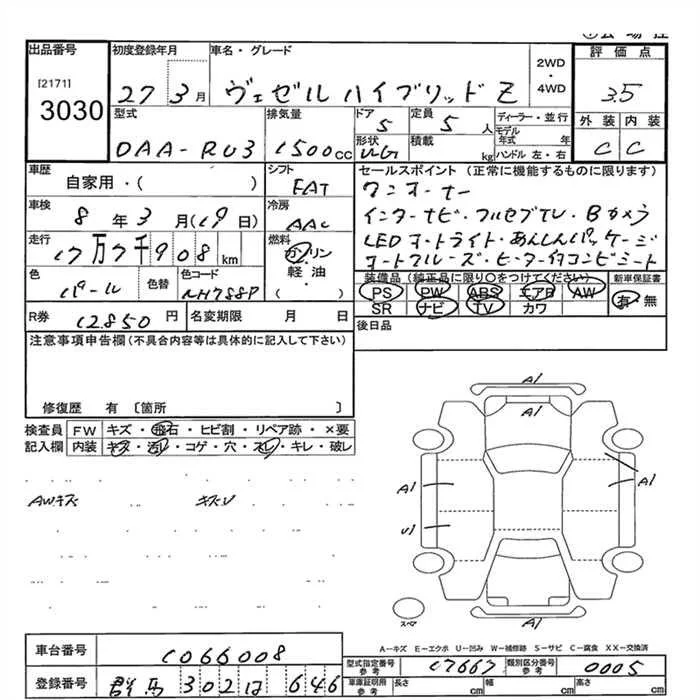 出品番号 初度登録年月 車名・グレード 評価点
[2171]
3030
27 3月 ヴェゼル ハイブリッド Z 2WD・4WD 3.5
型式 排気量 ドア 定員 ディーラー・並行 外装 内装
DAA-RU3 1500cc 5 5人 モデル年式 年 C C
形状 積載 kg ハンドル 左・右
車歴 シフト セールスポイント(正常に機能するものに限ります)
自家用・( ) FAT ワンオーナー
車検 冷房 インターナビ・フルセグTV・Bカメラ
8年3月(19日) AAC LEDオートライト・あんしんパッケージ
走行 燃料 オートクルーズ・ヒーター付コンビシート
17万7千908km ガソリン
色 色替 色コード 軽油・ 装備品(純正品に限り○をつけてください) 新車保証書
パール NH788P ( ) PS PW ABS エアB AW 有・無
SR ナビ TV カワ
R券 12,850円 名変期限 月 日 後日品
注意事項申告欄(不具合内容等は具体的に記入して下さい)
修復歴 有 〔箇所 〕
検査員 FW キズ・飛石・ヒビ割・リペア跡・×要
記入欄 内装 キズ・汚レ・コゲ・穴・スレ・キレ・破レ
AWキズ キズU
A1
A1
A1 A1
U1
A1
スペア
A-キズ E-エクボ U-凹み W-補修跡 S-サビ C-腐食 XX-交換済
車台番号 1066008 型式指定番号 参考 17667 類別区分番号 参考 0005
登録番号 群馬 302 は 646 車庫証明用 参考 長さ cm 幅 cm 高さ cm